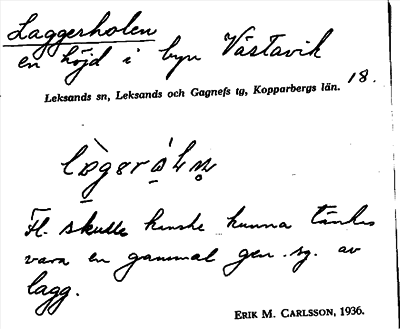 Laggerholen
en höjd i byn Västavik
18.
Leksands sn, Leksands och Gagnefs tg, Kopparbergs län.
Fl. skulle kanske kunna tänkas
vara en gammal gen. sg. av
lagg.
ERIK M. CARLSSON, 1936.